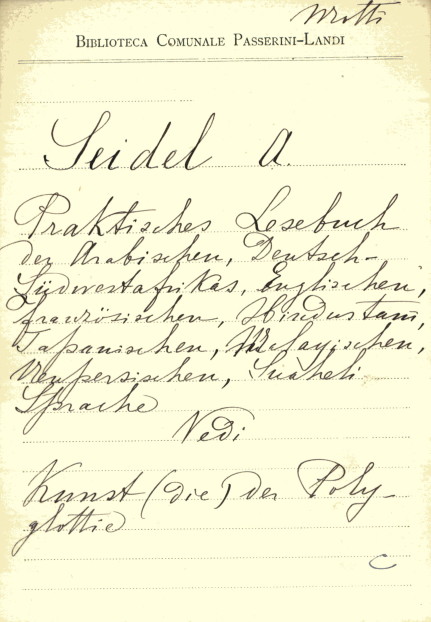 BIBLIOTECA COMUNALE PASSERINI-LANDI
Seidel A.
Praktisches Lesebuch
der Arabischen, Deutsch-
Südwestafrikas, Englischen,
französischen, Hindustani,
Japanischen, Malayischen,
Neupersischen, Suaheli
Sprache
Vedi
Kunst (die) der Poly-
glottie
C